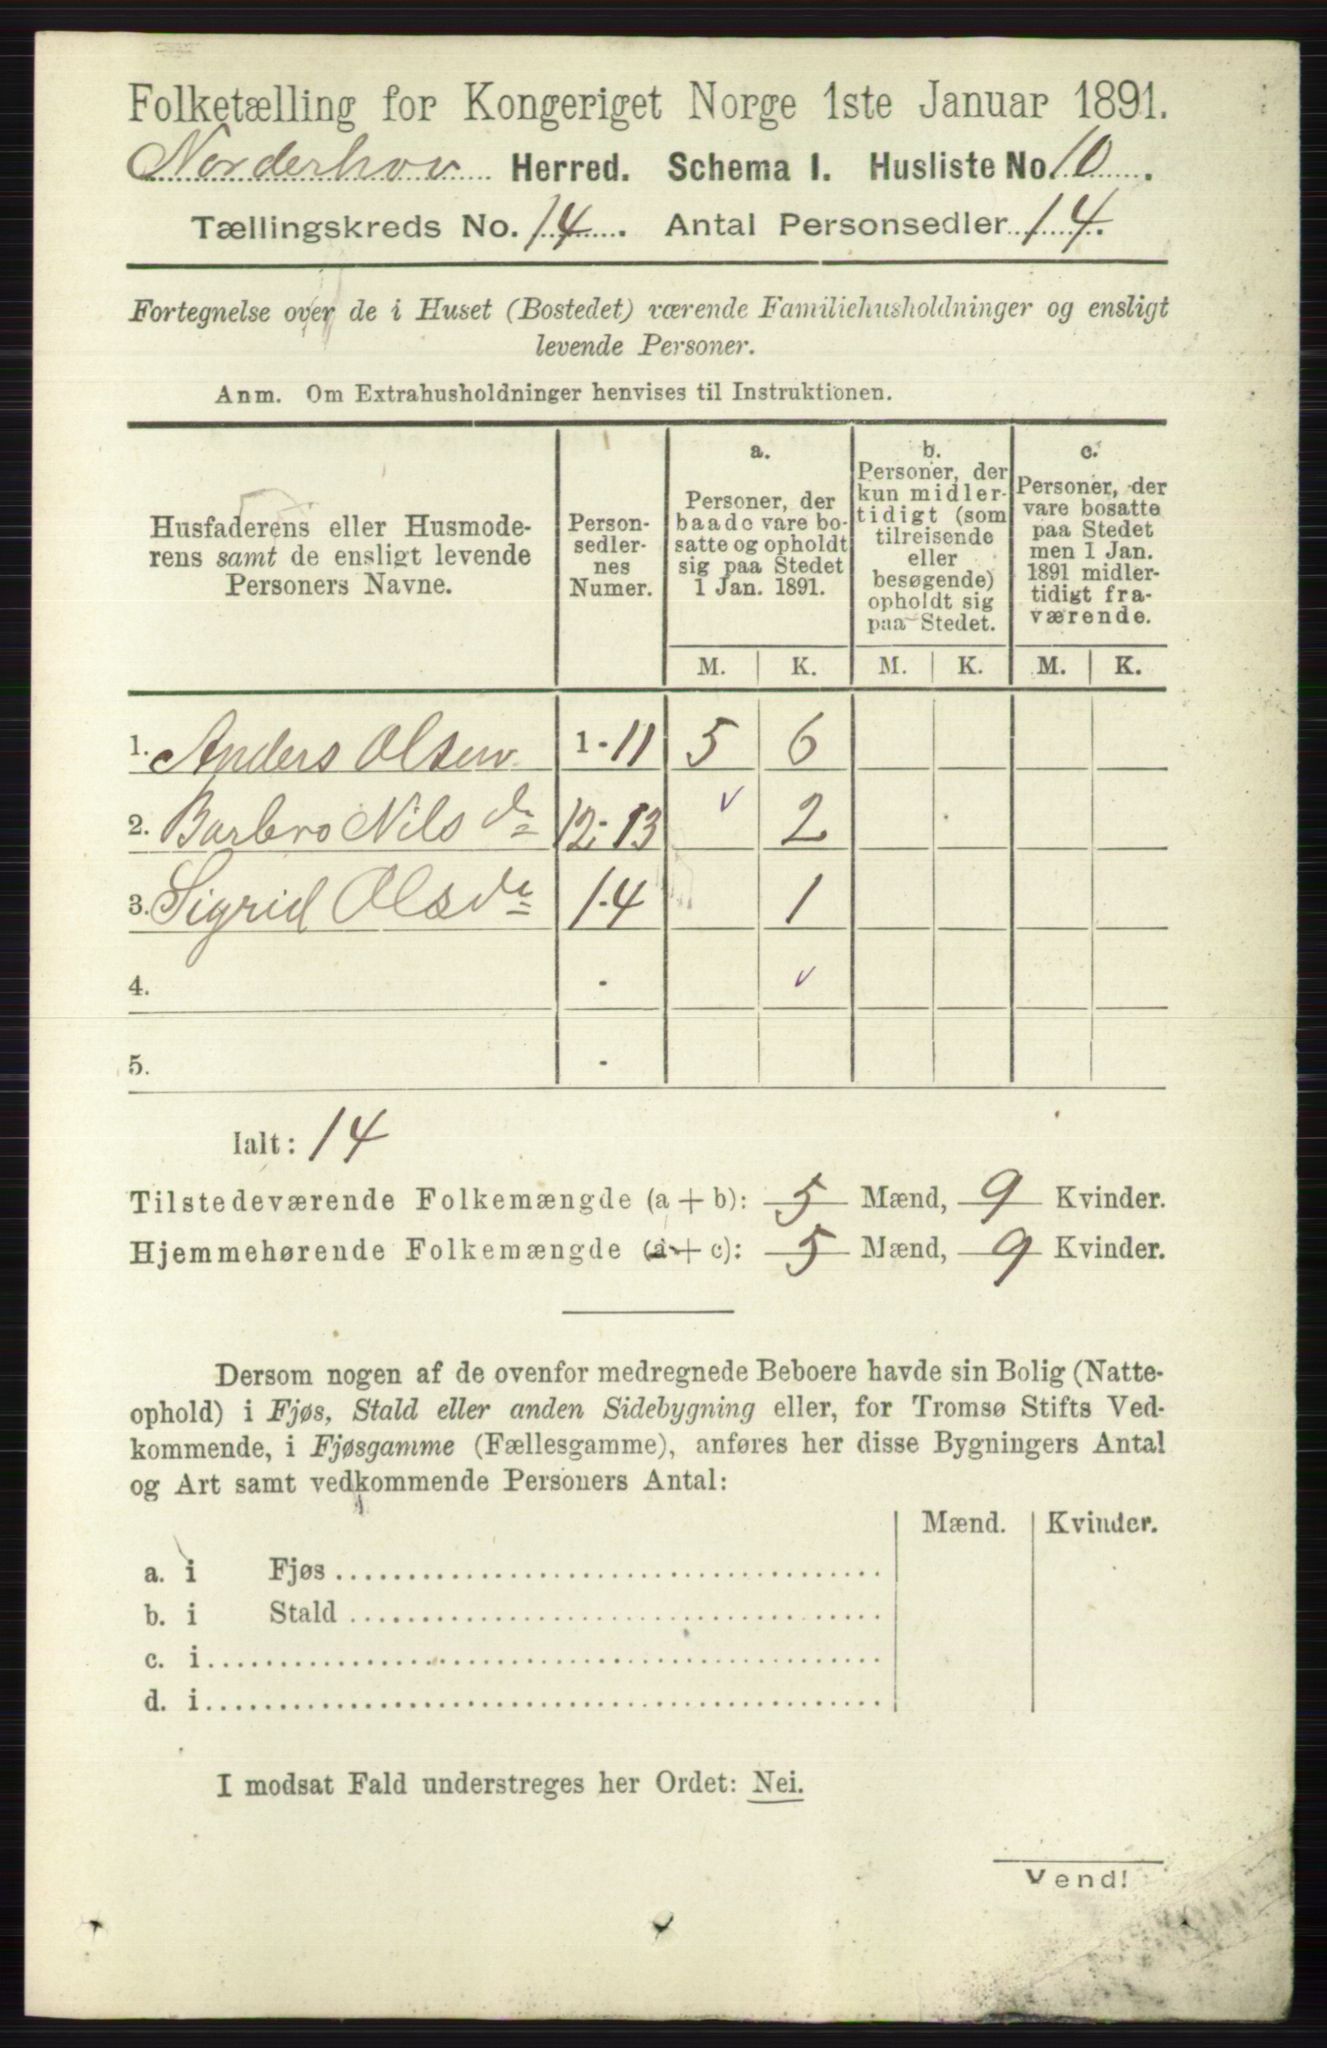 Folketælling for Kongeriget Norge 1ste Januar 1891.
Norderhov Herred. Schema I. Husliste No 10.
Tællingskreds No. 14. Antal Personsedler 14.
Fortegnelse over de i Huset (Bostedet) værende Familiehusholdninger og ensligt
levende Personer.
Anm. Om Extrahusholdninger henvises til Instruktionen.
Husfaderens eller Husmode-
rens samt de ensligt levende
Personers Navne.
Person-
sedler-
nes
Numer.
a.
Personer, der
baade vare bo-
satte og opholdt
sig paa Stedet
1 Jan. 1891.
b.
Personer, der
kun midler-
tidigt (som
tilreisende
eller
besøgende)
opholdt sig
paa Stedet.
c.
Personer, der
vare bosatte
paa Stedet
men 1 Jan.
1891 midler-
tidigt fra-
værende.
M. K. M. K. M. K.
1. Anders Olsen 1-11 5 6
2. Barbro Nilsdr 12-13 v 2
3. Sigrid Olsdr 14 1
4. - v
5. -
Ialt: 14
Tilstedeværende Folkemængde (a + b): 5 Mænd, 9 Kvinder.
Hjemmehørende Folkemængde (a + c): 5 Mænd, 9 Kvinder.
Dersom nogen af de ovenfor medregnede Beboere havde sin Bolig (Natte-
ophold) i Fjøs, Stald eller anden Sidebygning eller, for Tromsø Stifts Ved-
kommende, i Fjøsgamme (Fællesgamme), anføres her disse Bygningers Antal
og Art samt vedkommende Personers Antal:
Mænd. Kvinder.
a. i Fjøs
b. i Stald
c. i
d. i
I modsat Fald understreges her Ordet: Nei.
Vend!